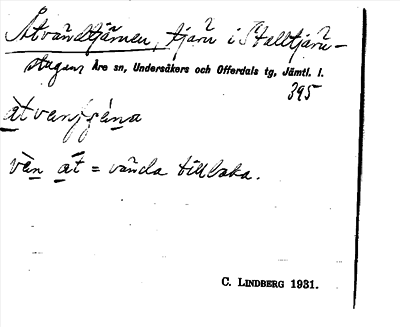 Åtvändtjärnen, tjärn i Stalltjärn-
stugan, Åre sn, Undersåkers och Offerdals tg, Jämtl. l.
395
vèn at = vända tillbaka.
C. LINDBERG 1931.